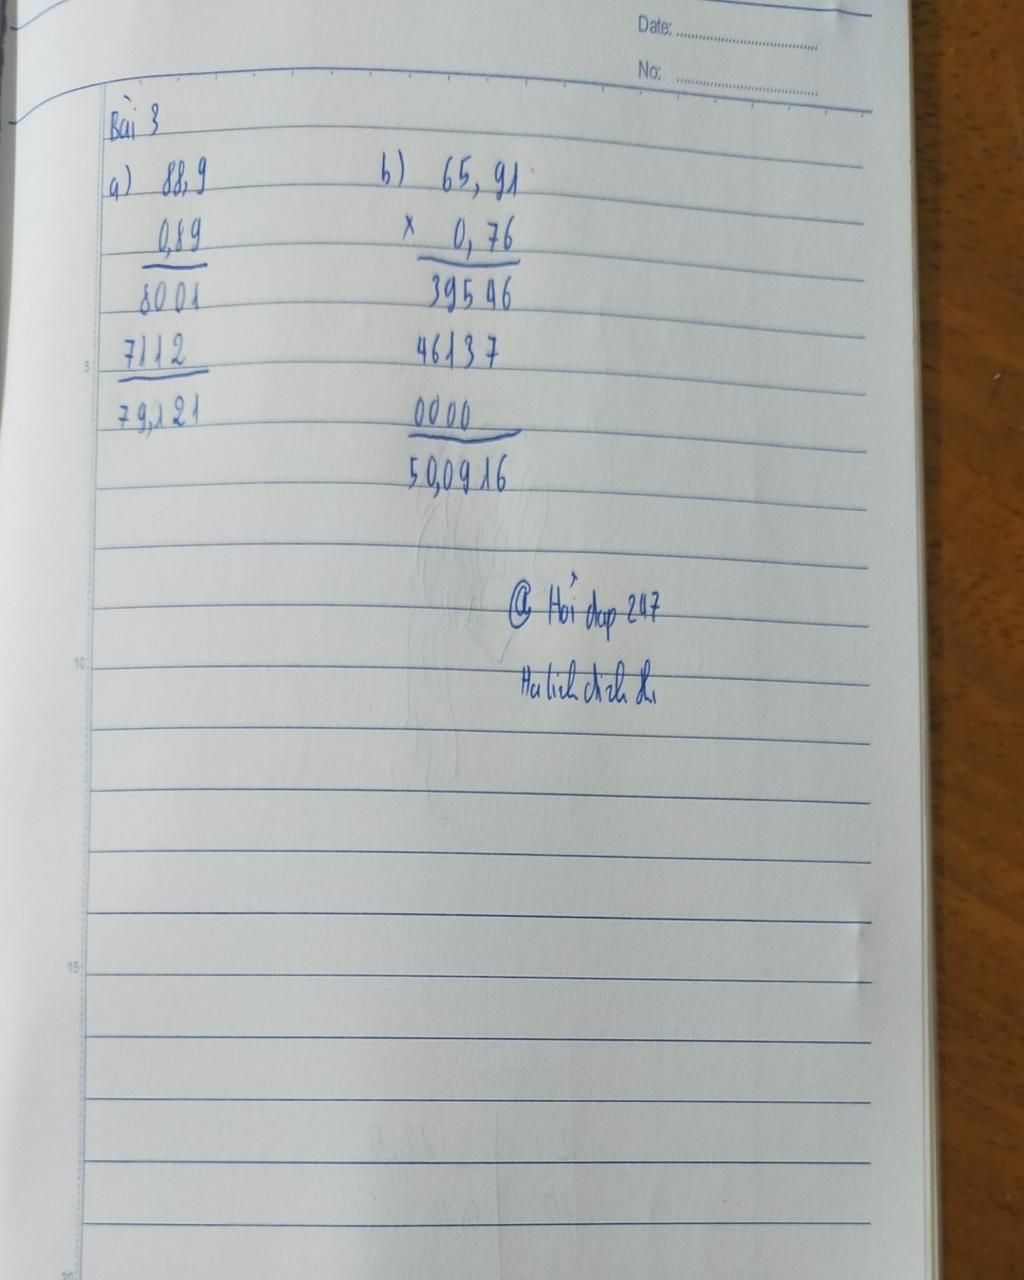 Date:
No:
Bài 3
a) 88,9
0,89
8001
7112
79,121
b) 65,91
x 0,76
39546
46137
0000
50,0916
@ Hỏi đap 247
5
10
15
20